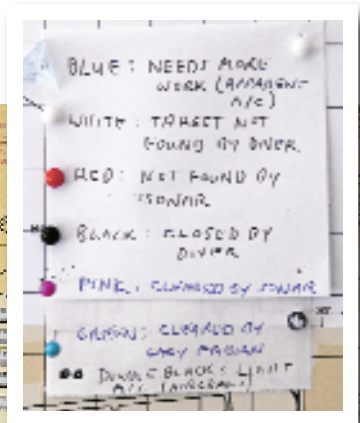 BLUE: NEEDS MORE
WORK (APPARENT
A/C)
WHITE: TARGET NOT
FOUND BY DIVER
RED: NOT FOUND BY
SONAR
BLACK: CLOSED BY
DIVER
PINK: CLEARED BY SONAR
GREEN: CLEARED BY
GARY FABIAN
DOUBLE BLACK: LIGHT
A/C (AIRCRAFT)